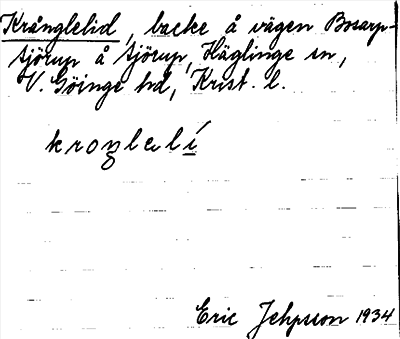 Krånglelid, backe å vägen Bosarp-
Njörup å Njörup, Häglinge sn,
V. Göinge hd, Krist. l.
kroŋlelí
Eric Jehpsson 1934